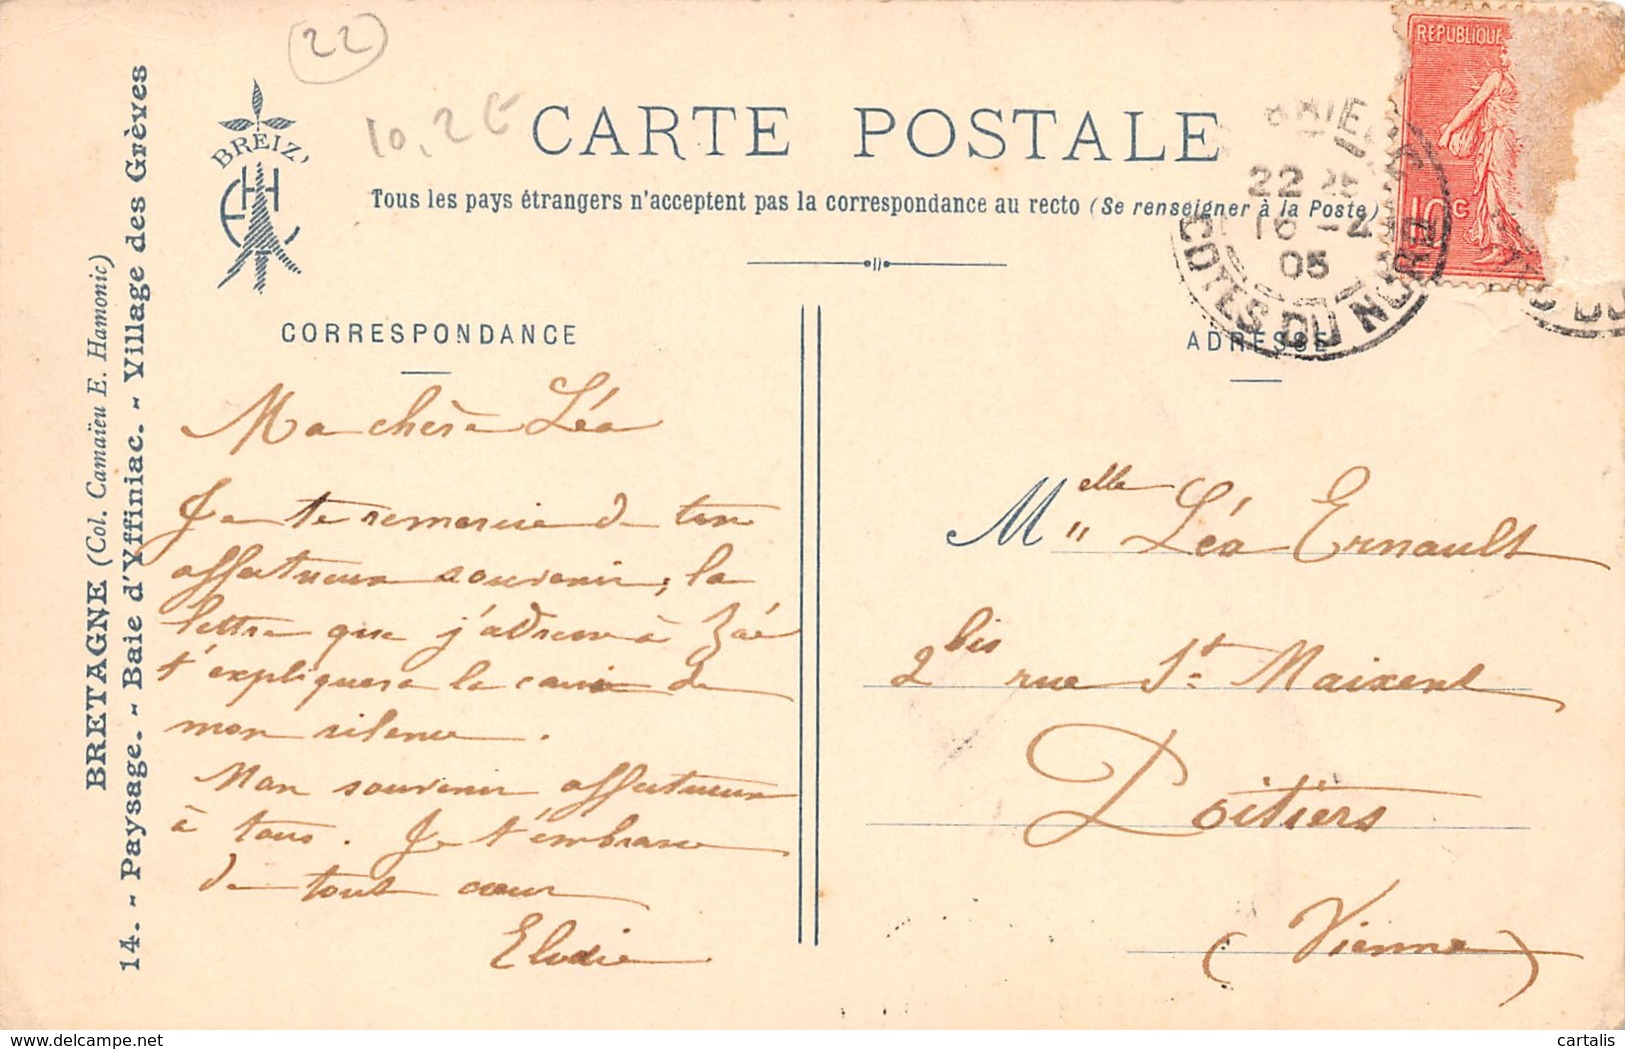 22
10,2€
BREIZ'
EH
CARTE POSTALE
Tous les pays étrangers n'acceptent pas la correspondance au recto (Se renseigner à la Poste)
REPUBLIQUE
10 c
BRIEUC
22
16 - 4
05
COTES DU NORD
BRETAGNE (Col. Camaïeu E. Hamonic)
14. - Paysage. - Baie d'Yffiniac. - Village des Grèves
CORRESPONDANCE
Ma chère Léa
Je te remercie de ton
affectueux souvenir, la
lettre que j'adresse à Zoé
t'expliquera la cause de
mon silence.
Mon souvenir affectueux
à tous. Je t'embrasse
de tout cœur
Elodie
ADRESSE
Melle Léa Ernault
2 bis rue St Maixent
Poitiers
(Vienne)
cartalis
www.delcampe.net